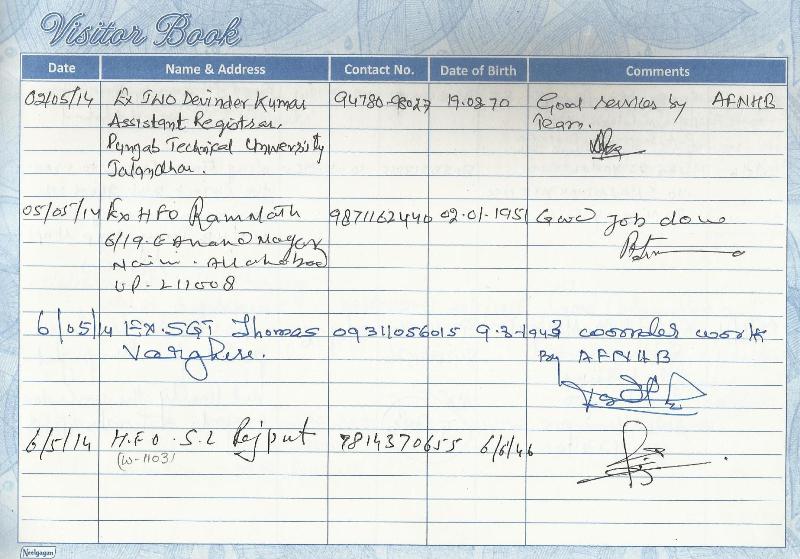 Visitor Book
Date Name & Address Contact No. Date of Birth Comments
02/05/14 Ex JWO Devinder Kumar 94780-98027 19.08.70 Good services by AFNHB
Assistant Registrar, Team.
Punjab Technical University
Jalandhar.
05/05/14 Ex HFO Ram Nath 9871162440 02.01.1951 Good Job done
6/19. E Anand Nagar
Naini. Allahabad
UP-211008
6/05/14 EX.SGT Thomas 09311056015 9.3-1943 work
Varghese. By AFNHB
6/5/14 H.F.O. S.L Rajput 9814370655 6/6/46
(W-1103)
Neelgagan